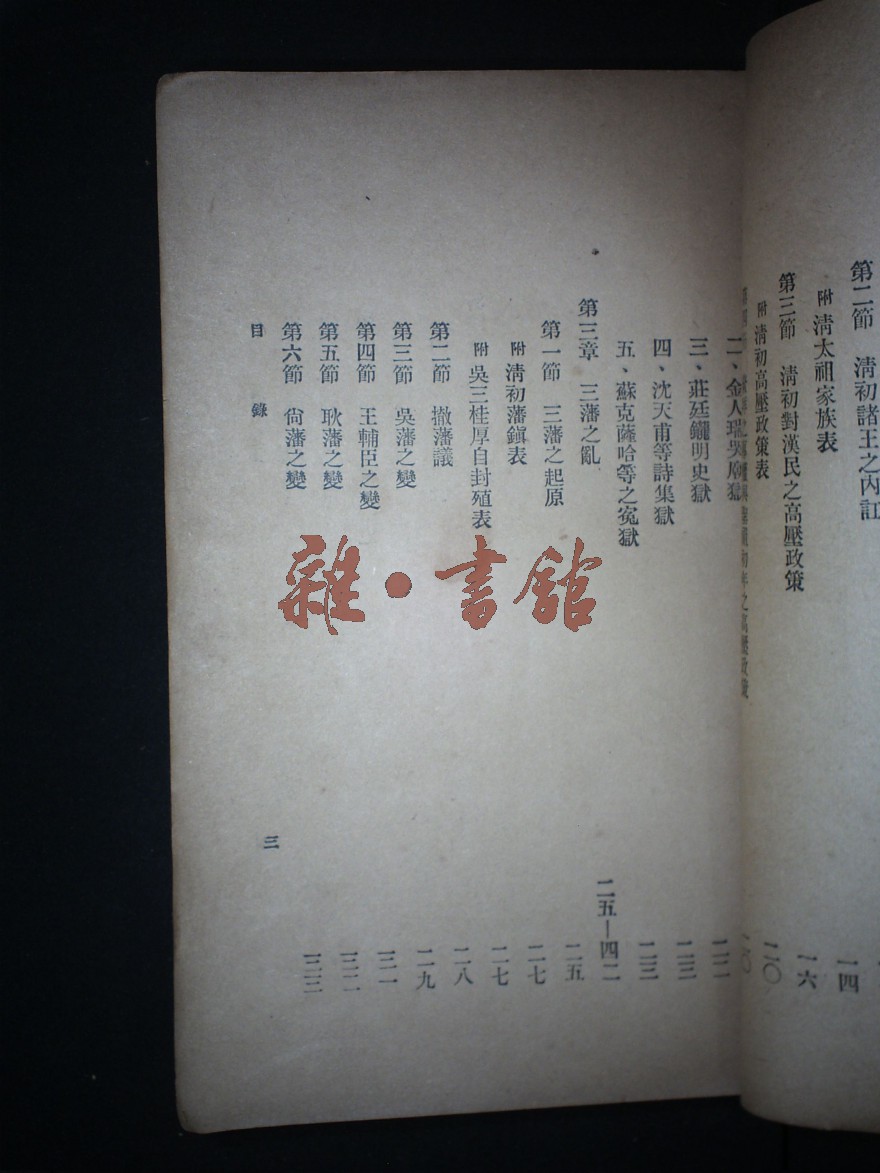 第二節 清初諸王之內訌
附 清太祖家族表 一四
第三節 清初對漢民之高壓政策 一六
附 清初高壓政策表 二〇
二、金人瑞哭廟獄
三、莊廷鑨明史獄 二二
四、沈天甫等詩集獄 二三
五、蘇克薩哈等之冤獄 二三
第三章 三藩之亂 二五—四二
第一節 三藩之起原 二五
附 清初藩鎮表 二七
附 吳三桂厚自封殖表 二七
第二節 撤藩議 二八
第三節 吳藩之變 二九
第四節 王輔臣之變 三一
第五節 耿藩之變 三二
第六節 尙藩之變 三三
目錄 三
雜·書館